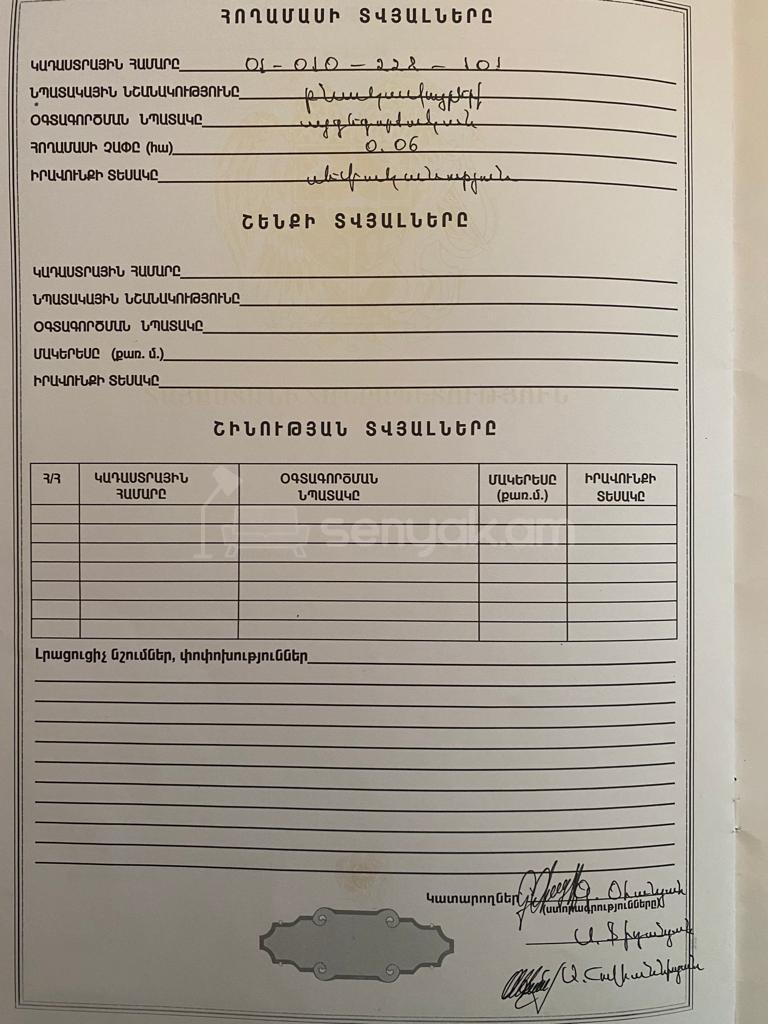 ՀՈՂԱՄԱՍԻ ՏՎՅԱԼՆԵՐԸ
ԿԱԴԱՍՏՐԱՅԻՆ ՀԱՄԱՐԸ 01-010-228-101
ՆՊԱՏԱԿԱՅԻՆ ՆՇԱՆԱԿՈՒԹՅՈՒՆԸ բնակավայրերի
ՕԳՏԱԳՈՐԾՄԱՆ ՆՊԱՏԱԿԸ այգեգործական
ՀՈՂԱՄԱՍԻ ՉԱՓԸ (հա) 0.06
ԻՐԱՎՈՒՆՔԻ ՏԵՍԱԿԸ սեփականություն
ՇԵՆՔԻ ՏՎՅԱԼՆԵՐԸ
ԿԱԴԱՍՏՐԱՅԻՆ ՀԱՄԱՐԸ
ՆՊԱՏԱԿԱՅԻՆ ՆՇԱՆԱԿՈՒԹՅՈՒՆԸ
ՕԳՏԱԳՈՐԾՄԱՆ ՆՊԱՏԱԿԸ
ՄԱԿԵՐԵՍԸ (քառ. մ.)
ԻՐԱՎՈՒՆՔԻ ՏԵՍԱԿԸ
ՇԻՆՈՒԹՅԱՆ ՏՎՅԱԼՆԵՐԸ
Հ/Հ ԿԱԴԱՍՏՐԱՅԻՆ ՕԳՏԱԳՈՐԾՄԱՆ ՄԱԿԵՐԵՍԸ ԻՐԱՎՈՒՆՔԻ
ՀԱՄԱՐԸ ՆՊԱՏԱԿԸ (քառ.մ.) ՏԵՍԱԿԸ
senyak.am
Լրացուցիչ նշումներ, փոփոխություններ
Կատարողներ
(ստորագրությունները)